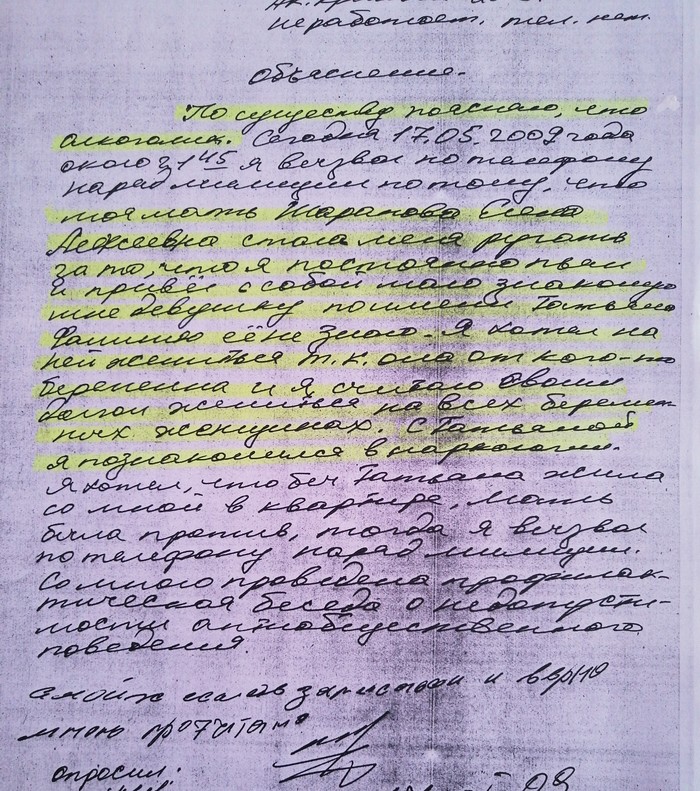 неработает. тел. нет.
Объяснение.
По существу поясняю, что
алкоголик. Сегодня 17.05.2009 года
около 21 45 я вызвал по телефону
наряд милиции потому, что
моя мать Шарапова Елена
Алексеевна стала меня ругать
за то, что я постоянно пьян
и привёл с собой мало знакомую
мне девушку по имени Татьяна
Фамилию её не знаю. Я хотел на
ней жениться т.к. она от кого-то
беременна и я считаю своим
долгом жениться на всех беремен
ных женщинах. С Татьяной
я познакомился в наркологии.
Я хотел, что бы Татьяна жила
со мной в квартире, Мать
была против, тогда я вызвал
по телефону наряд милиции.
Со мною проведена профилак-
тическая беседа о недопусти-
мости антиобщественного
поведения.
с моих слов записано и верно
мною прочитано
опросил: